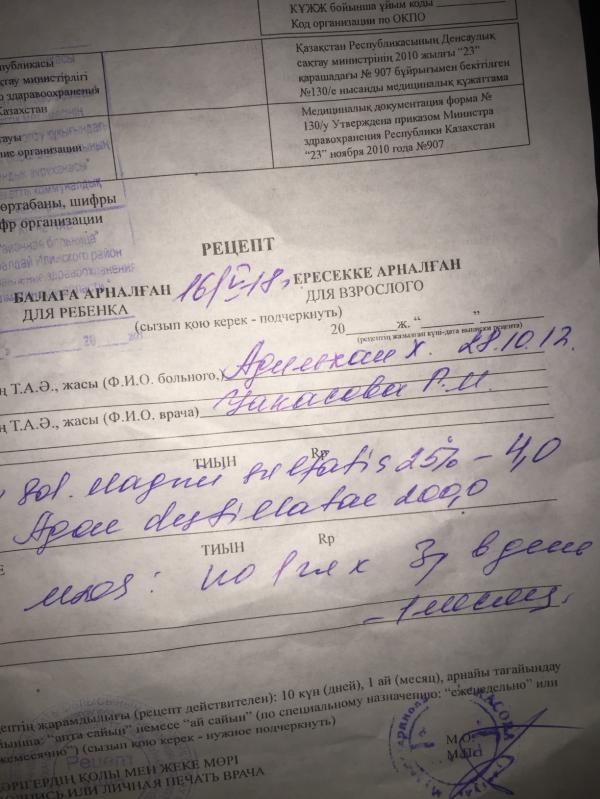 КҰЖЖ бойынша ұйым коды
Код организации по ОКПО
Қазақстан Республикасының Денсаулық
сақтау министрінің 2010 жылғы “23”
қарашадағы № 907 бұйрығымен бекітілген
№130/е нысанды медициналық құжаттама
министрлігі
здравоохранения
Казахстан
Медициналық документация форма №
130/у Утверждена приказом Министра
здравохранения Республики Казахстан
“23” ноября 2010 года №907
организации
шифры
организации
РЕЦЕПТ
БАЛАҒА АРНАЛҒАН 16/V-18. ЕРЕСЕККЕ АРНАЛҒАН
ДЛЯ РЕБЕНКА ДЛЯ ВЗРОСЛОГО
(сызып қою керек - подчеркнуть)
20 ж. “ ”
(рецептің жазылған күні-дата выписки рецепта)
Т.А.Ә., жасы (Ф.И.О. больного,) Адильхан Х. 28.10.12.
Т.А.Ә., жасы (Ф.И.О. врача) Р.М.
ТИЫН Rp
Sol. Magnii sulfatis 25% - 4,0
200,0
ТИЫН Rp
по 1 ч л х 3 р в день
- 1 месяц.
жарамдылығы (рецепт действителен): 10 күн (дней), 1 ай (месяц), арнайы тағайындау
“апта сайын” немесе “ай сайын” (по специальному назначению: “еженедельно” или
(сызып қою керек - нужное подчеркнуть)
М.О.
М.П.
ҚОЛЫ МЕН ЖЕКЕ МӨРІ
ИЛИ ЛИЧНАЯ ПЕЧАТЬ ВРАЧА